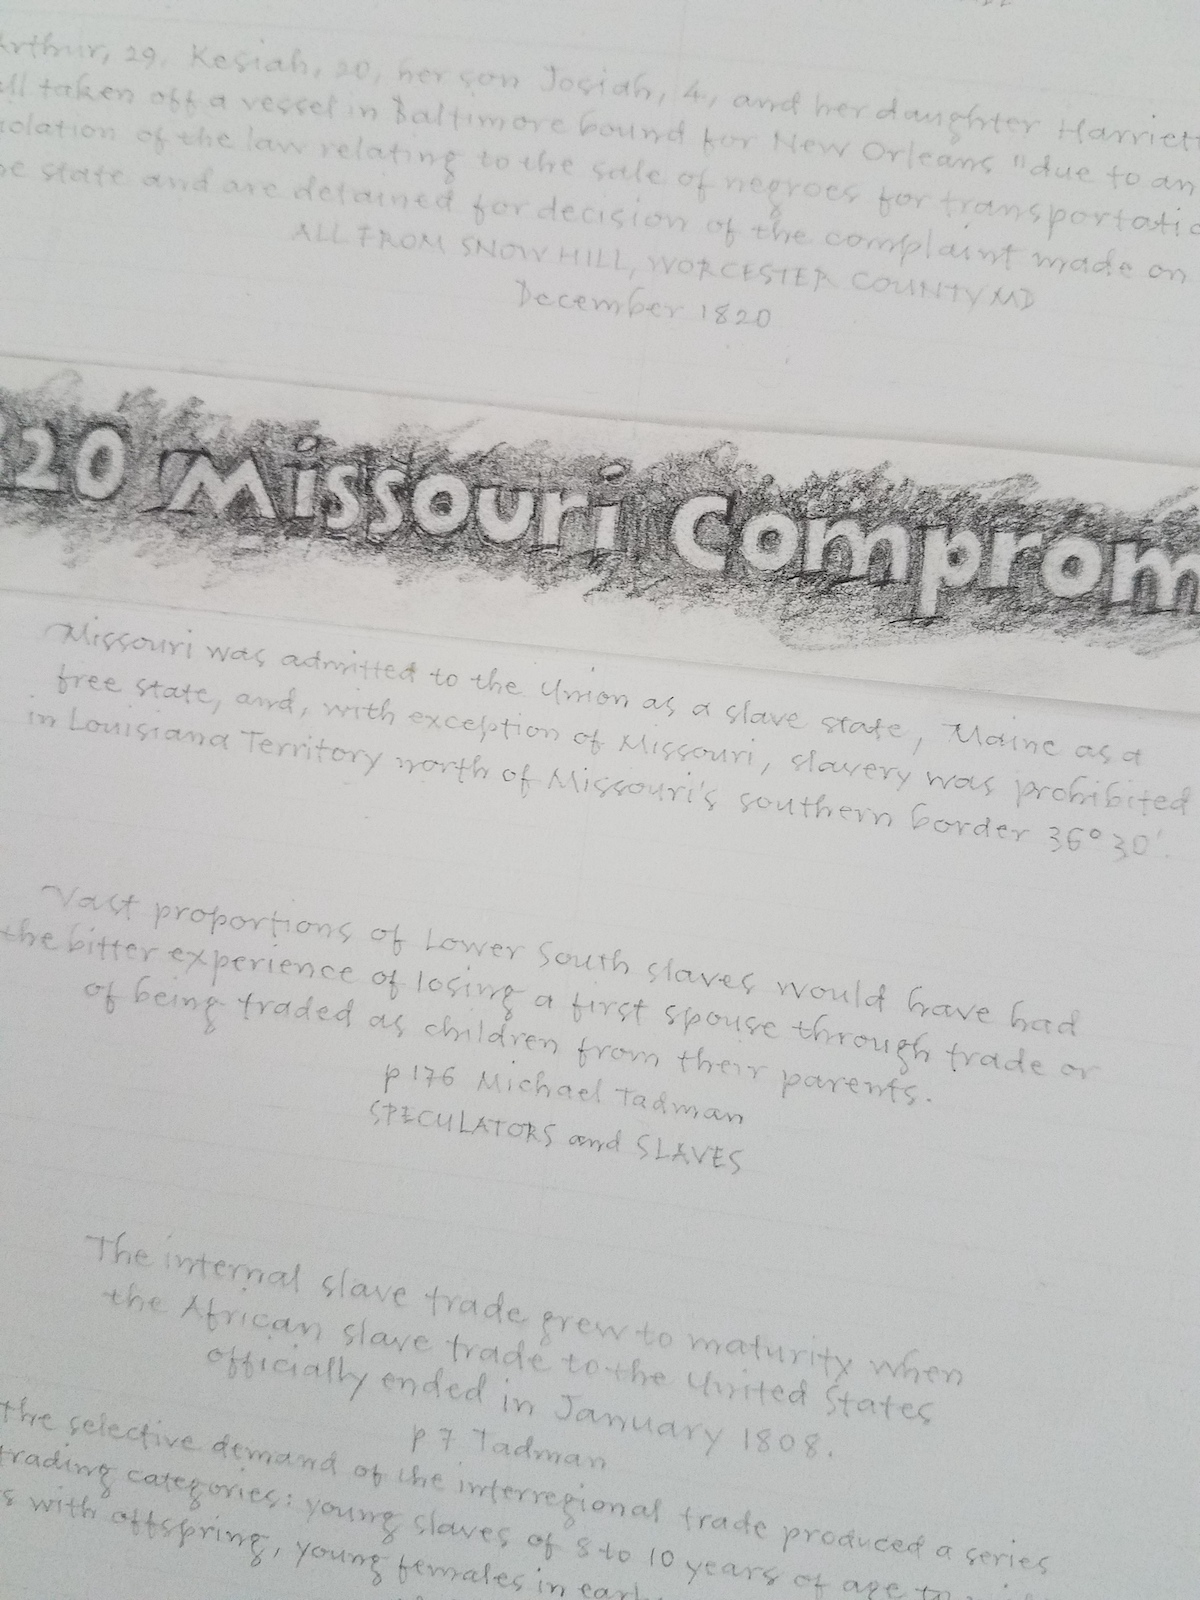 Arthur, 29, Kesiah, 20, her son Josiah, 4, and her daughter Harriett
all taken off a vessel in Baltimore bound for New Orleans "due to an
violation of the law relating to the sale of negroes for transportatio
state and are detained for decision of the complaint made on
ALL FROM SNOW HILL, WORCESTER COUNTY MD
December 1820
20 Missouri Comprom
Missouri was admitted to the Union as a slave state, Maine as a
free state, and, with exception of Missouri, slavery was prohibited
in Louisiana Territory north of Missouri's southern border 36° 30'.
Vast proportions of Lower South slaves would have had
the bitter experience of losing a first spouse through trade or
of being traded as children from their parents.
p 176 Michael Tadman
SPECULATORS and SLAVES
The internal slave trade grew to maturity when
the African slave trade to the United States
officially ended in January 1808.
p 7 Tadman
The selective demand of the interregional trade produced a series
trading categories: young slaves of 8 to 10 years of age to
s with offspring, young females in earl